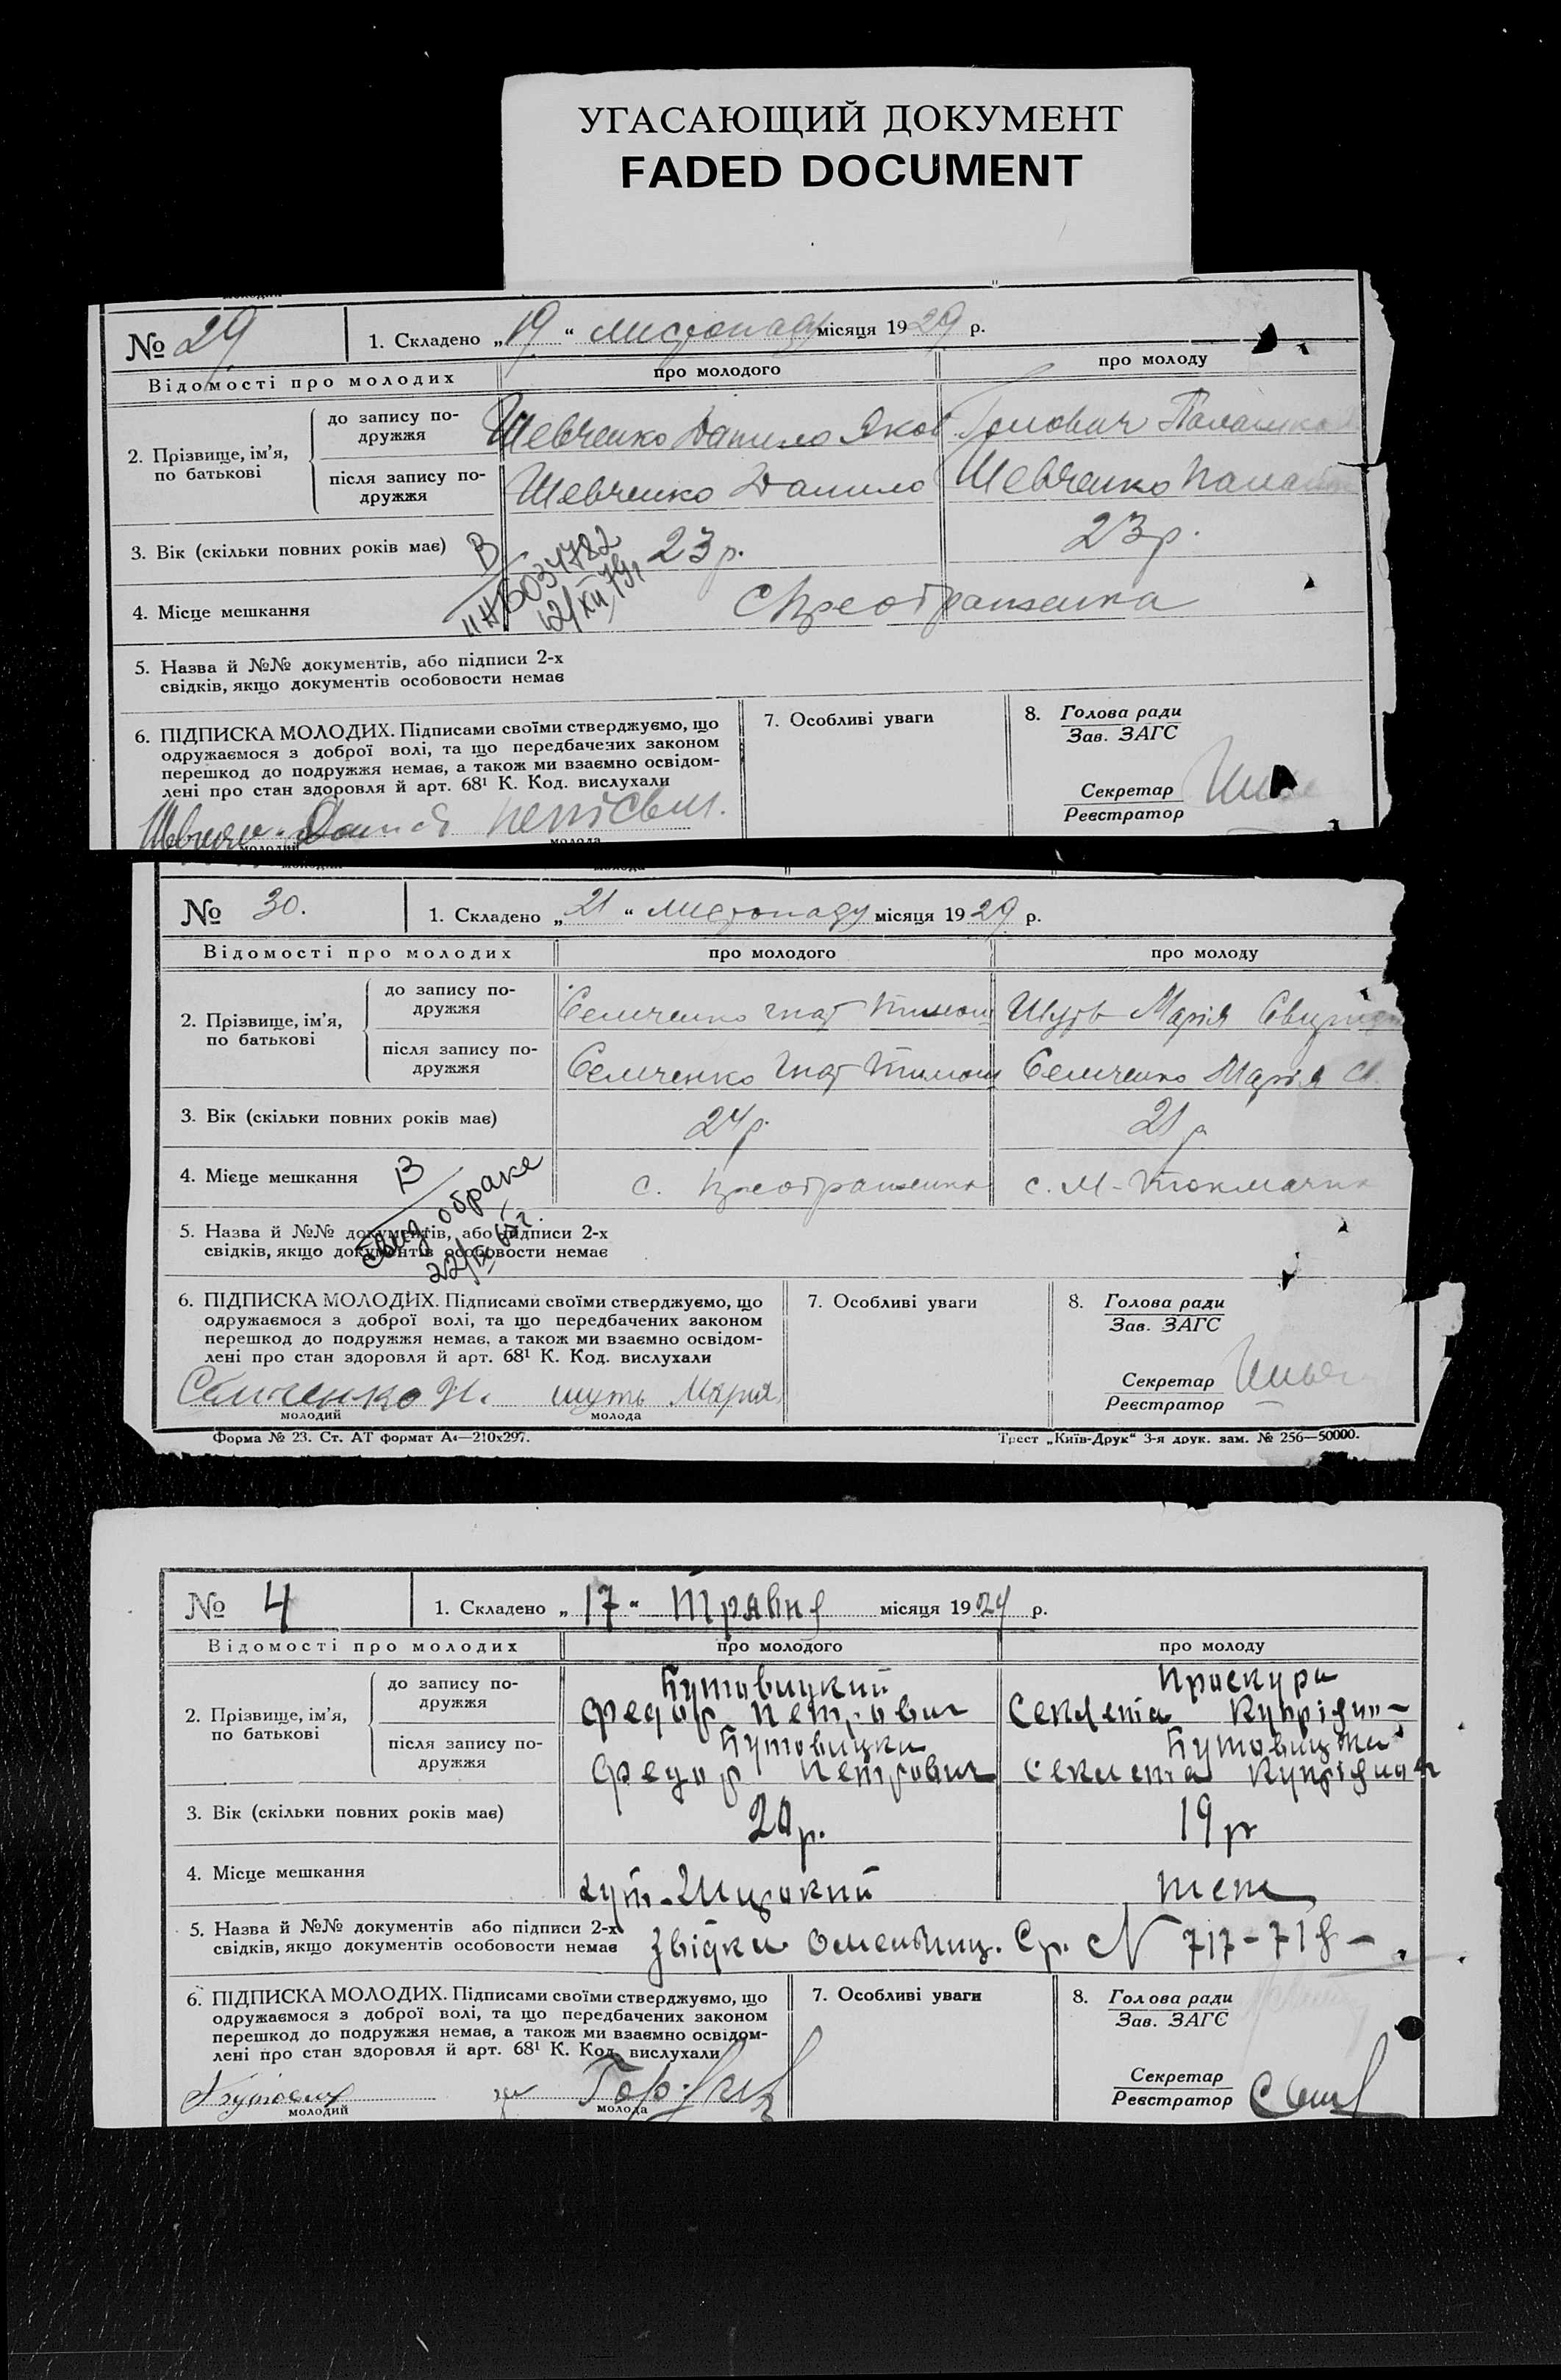 УГАСАЮЩИЙ ДОКУМЕНТ
FADED DOCUMENT
№ 29
1. Складено „19“ листопаду місяця 1929 р.
Відомості про молодих
про молодого
про молоду
2. Прізвище, ім'я, по батькові
до запису по-
дружжя
Шевченко Данило Яков
після запису по-
дружжя
Шевченко Данило
Шевченко
3. Вік (скільки повних років має)
23 р.
23 р.
В
12/XII
4. Місце мешкання
с Преображенка
5. Назва й №№ документів, або підписи 2-х
свідків, якщо документів особовости немає
6. ПІДПИСКА МОЛОДИХ. Підписами своїми стверджуємо, що
одружаємося з доброї волі, та що передбачених законом
перешкод до подружжя немає, а також ми взаємно освідом-
лені про стан здоровля й арт. 68¹ К. Код. вислухали
молодий
молода
7. Особливі уваги
8. Голова ради
Зав. ЗАГС
Секретар
Реєстратор
№ 30.
1. Складено „21“ листопаду місяця 1929 р.
Відомості про молодих
про молодого
про молоду
2. Прізвище, ім'я,
по батькові
до запису по-
дружжя
Семченко Гнат Тимош
Шуть Марія
після запису по-
дружжя
Семченко Гнат Тимош
Семченко Марія
3. Вік (скільки повних років має)
24 р.
21 р
4. Місце мешкання
В
с. Преображенка
с. М-Токмачка
5. Назва й №№ документів, або підписи 2-х
свідків, якщо документів особовости немає
о браке
6. ПІДПИСКА МОЛОДИХ. Підписами своїми стверджуємо, що
одружаємося з доброї волі, та що передбачених законом
перешкод до подружжя немає, а також ми взаємно освідом-
лені про стан здоровля й арт. 68¹ К. Код. вислухали
Семченко
шуть Мария
молодий
молода
7. Особливі уваги
8. Голова ради
Зав. ЗАГС
Секретар
Реєстратор
Форма № 23. Ст. АТ формат А₄—210х297.
Трест „Київ-Друк“ 3-я друк. зам. № 256—50000.
№ 4
1. Складено „17“ травня місяця 1929 р.
Відомості про молодих
про молодого
про молоду
2. Прізвище, ім'я,
по батькові
до запису по-
дружжя
Бутовицкий
Федор Петрович
Проскура
Секлета
після запису по-
дружжя
Федор Петрович
Секлета
3. Вік (скільки повних років має)
20 р.
19 р
4. Місце мешкання
хут.
теж
5. Назва й №№ документів або підписи 2-х
свідків, якщо документів особовости немає
Звідки Омельниц. Ср. № 717-718-
6. ПІДПИСКА МОЛОДИХ. Підписами своїми стверджуємо, що
одружаємося з доброї волі, та що передбачених законом
перешкод до подружжя немає, а також ми взаємно освідом-
лені про стан здоровля й арт. 68¹ К. Код. вислухали
молодий
молода
7. Особливі уваги
8. Голова ради
Зав. ЗАГС
Секретар
Реєстратор